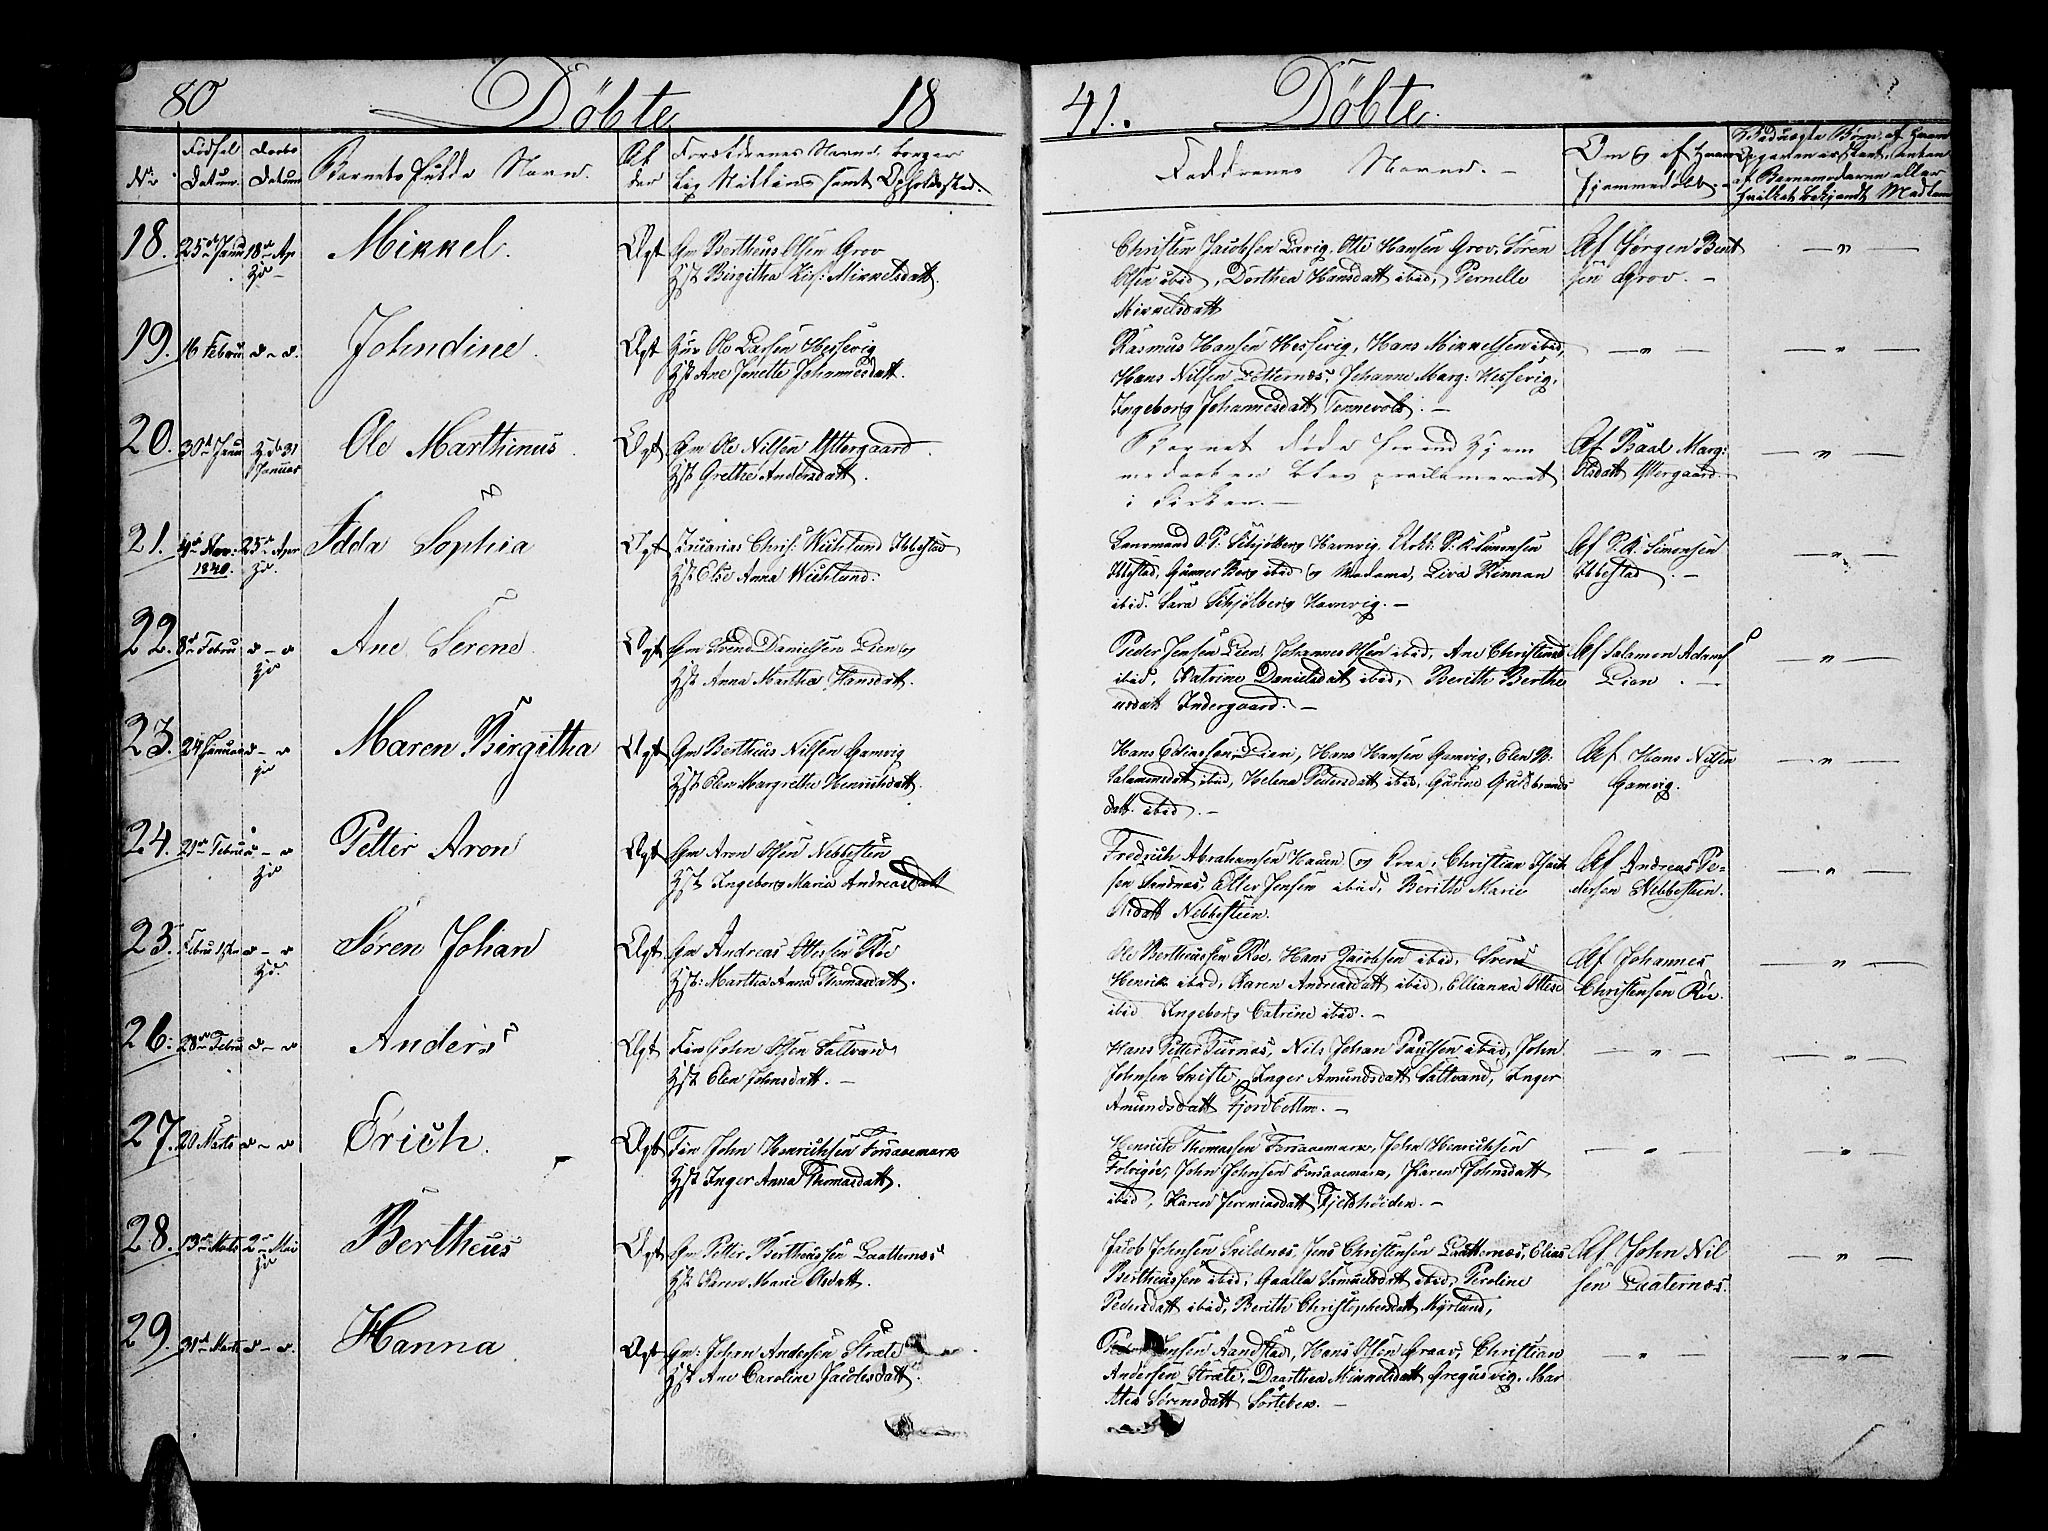 80 Döbte 18
41. Döbte.
No.
Födsel Datum.
Daabs Datum
Barnets fulde Navn.
Forældrenes Navne, borger-
lig Stilling samt Opholdssted.
Faddrenes Navne. -
Om og af hvem
hjemmedøbt. -
18. 25de Janu 18de Ap
Mikkel.
Ægt Gm Bertheus Olsen Grov
Hst Birgitha Lis: Mikkelsdatt.
Christen Jacobsen Lavig, Ole Hansen Grov, Sören
Olsen ibid, Dorthea Hansdatt ibid, Pernelle
Mikkelsdatt
Af Jørgen Bent
sen Grov. -
— " —
19. 16 Febru d - d.
Johndine.
Ægt Ole Larsen Hessevig
Hst Ane Jonette Johannesdatt.
Rasmus Hansen Hessevig, Hans Mikkelsen ibid,
Hans Nilsen Løtternes, Johanne Marg: Hessevig,
Ingeborg Johannesdatt Tennevold. -
— " —
— " —
20. 30te Janu 31 Januar
Ole Marthinus.
Ægt. Gm Ole Nilsen Yttergaard.
Hst Grethe Andersdatt.
Barnet døde forend Hjem
medaaben blev proclameret
i Kirken. -
Af Baal Marg:
Olsdatt Yttergaard. -
— " —
21. 4de Nov: 1840. 25de Apr
Idda Sophia
Ægt Zacarias Chris: Wichlund Ibbestad
Hst Else Anna Wichlund.
Lensmand O. P. Schjölberg Havnvig, P. K. Simonsen
Ibbestad, Gunner Berg ibid og Madame, Liva Kinnan
ibid. Sara Schjölberg Havnvig. -
Af P. K. Simonsen
Ibbestad. -
— " —
22. 8de Febru d - d
Ane Serene.
Ægt Gm Svend Danielsen Lien
Hst Anna Martha Hansdatt.
Peder Jensen Lien, Johannes Olsen ibid, Ane Christine
ibid, Katrine Danielsdatt ibid, Berith Berthe
usdatt Indergaard. -
Af Salamon Adams
Lien. -
— " —
23. 24 Januar d - d
Maren Birgitha
Ægt Gm Bertheus Nilsen Gamvig
Hst Elen Margrethe Henrichsdatt.
Hans Ediassen Lien, Hans Hansen Gamvig, Elen B.
Salamonsdatt ibid, Helena Pedersdatt ibid, Gurine Guldbrands
datt. ibid. -
Af Hans Nilsen
Gamvig.
— " —
24. 21de Febru d - d
Petter Aron
Ægt Gm Aron Olsen Nebbestein
Hst Ingeborg Maria Andreasdatt
Fredrich Abrahamsen Hauen og Kone, Christian Isach
sen Sandnæs, Eller Jensen ibid, Berith Marie
Olsdatt Nebbestein.
Af Andreas Pe-
dersen Nebbestein.
— " —
25. Febru d - d
Søren Johan
Ægt Gm Andreas Ottesen Röe
Hst: Martha Anna Thomasdatt.
Ole Bertheussen Röe, Hans Jacobsen ibid, Svend
Henrik ibid, Karen Andreasdatt ibid, Ellianna Ottese
ibid Ingeborg Catrine ibid. -
Af Johannes
Christensen Röe.
— " —
26. 28de Febru d - d
Anders
Ægt Fin John Olsen Saltvand
Hst Elen Johnsdatt. -
Hans Petter Furnes, Nils Johan Paulsen ibid, John
Johnsen Snifte, Inger Amundsdatt Saltvand, Inger
Amundsdatt Fjordbottn. -
— " —
— " —
27. 20 Marts d - d
Erich.
Ægt Fin John Henrichsen Forsaaemark
Hst Inger Anna Thomasdatt.
Henrich Thomassen Forsaaemark, John Henrichsen
John Johnsen Forsaaemark, Karen Johnsdatt
ibid, Karen Jeremiasdatt -
— " —
— " —
28. 13de Marts 2de Mai
Bertheus
Ægt Gm Petter Bertheussen Laatternes
Hst Karen Marie Olsdatt.
Jacob Johnsen Skildnes, Jens Christensen Laatternæs, Elias
Bertheussen ibid, Gaalla Samuelsdatt ibid, Peroline
Pedersdatt ibid, Berith Christophersdatt Myrlund,
Af John Nil
sen Laaternæs.
— " —
29. 31te Marts d - d.
Hanna
Ægt Gm. Johan Andersen Stræte
Hst Ane Caroline Jacobsdatt.
Jensen Aandstad, Hans Olsen Graav, Christian
Andersen Stræte, Daarthea Mikkelsdatt Gregusvig, Mar
thea Sørensdatt Sörteben. -
— " —
— " —